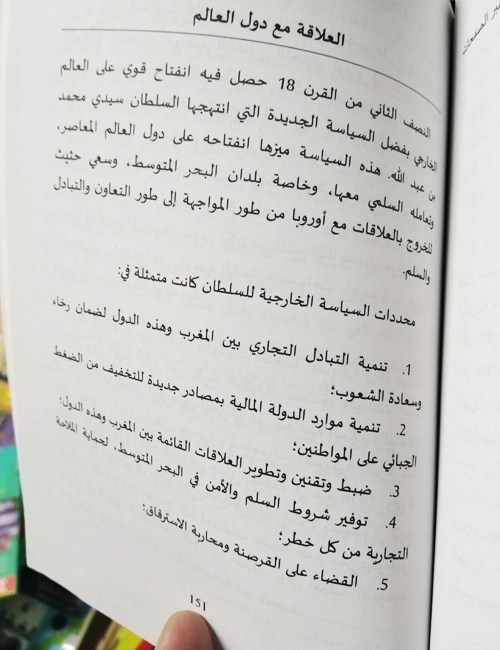 العلاقة مع دول العالم
النصف الثاني من القرن 18 حصل فيه انفتاح قوي على العالم
الخارجي بفضل السياسة الجديدة التي انتهجها السلطان سيدي محمد
بن عبد الله. هذه السياسة ميزها انفتاحه على دول العالم المعاصر،
وتعامله السلمي معها، وخاصة بلدان البحر المتوسط، وسعي حثيث
للخروج بالعلاقات مع أوروبا من طور المواجهة إلى طور التعاون والتبادل
والسلم.
محددات السياسة الخارجية للسلطان كانت متمثلة في:
1. تنمية التبادل التجاري بين المغرب وهذه الدول لضمان رخاء
وسعادة الشعوب؛
2. تنمية موارد الدولة المالية بمصادر جديدة للتخفيف من الضغط
الجبائي على المواطنين؛
3. ضبط وتقنين وتطوير العلاقات القائمة بين المغرب وهذه الدول؛
4. توفير شروط السلم والأمن في البحر المتوسط، لحماية الملاحة
التجارية من كل خطر؛
5. القضاء على القرصنة ومحاربة الاسترقاق؛
151